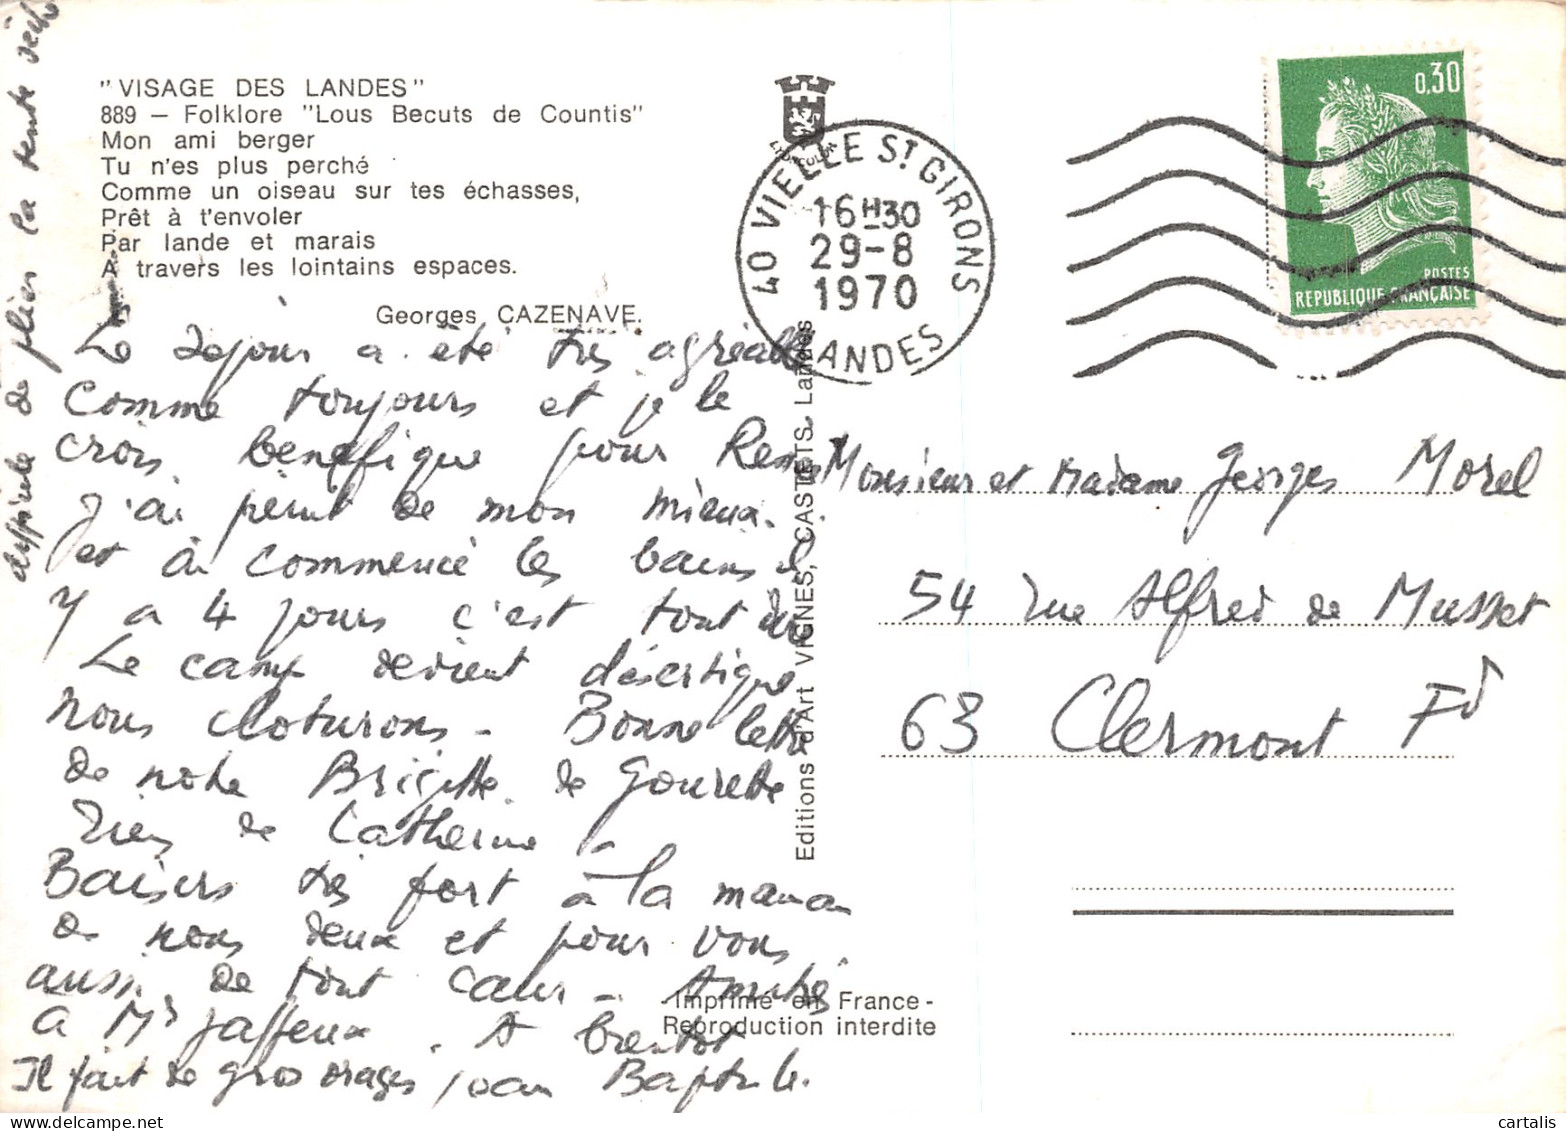 "VISAGE DES LANDES"
889 — Folklore "Lous Becuts de Countis"
Mon ami berger
Tu n'es plus perché
Comme un oiseau sur tes échasses,
Prêt à t'envoler
Par lande et marais
A travers les lointains espaces.
Georges CAZENAVE.
LYON COLOR
40 VIELLE ST GIRONS
16H30
29-8
1970
LANDES
0,30
POSTES
REPUBLIQUE FRANÇAISE
Le séjour a été très agréable
comme toujours et je le
crois bénéfique pour
J'ai de mon mieux.
et ai commencé les bains il
y a 4 jours c'est tout
Le camp devient désertique
nous cloturons - Bonne lettre
de notre Brigitte de Gourette
rien de Catherine -
Baisers très fort à la maman
de nous deux et pour vous
aussi de tout cœur - Amitiés
à Mr Jaffeux. A bientot
Il fait de gros orages, Baptiste.
difficile de plier la tente
Editions d'Art VIGNES, CASTETS, Landes
Monsieur et Madame Georges Morel
54 rue Alfred de Musset
63 Clermont Fd
- Imprimé en France -
Reproduction interdite
cartalis